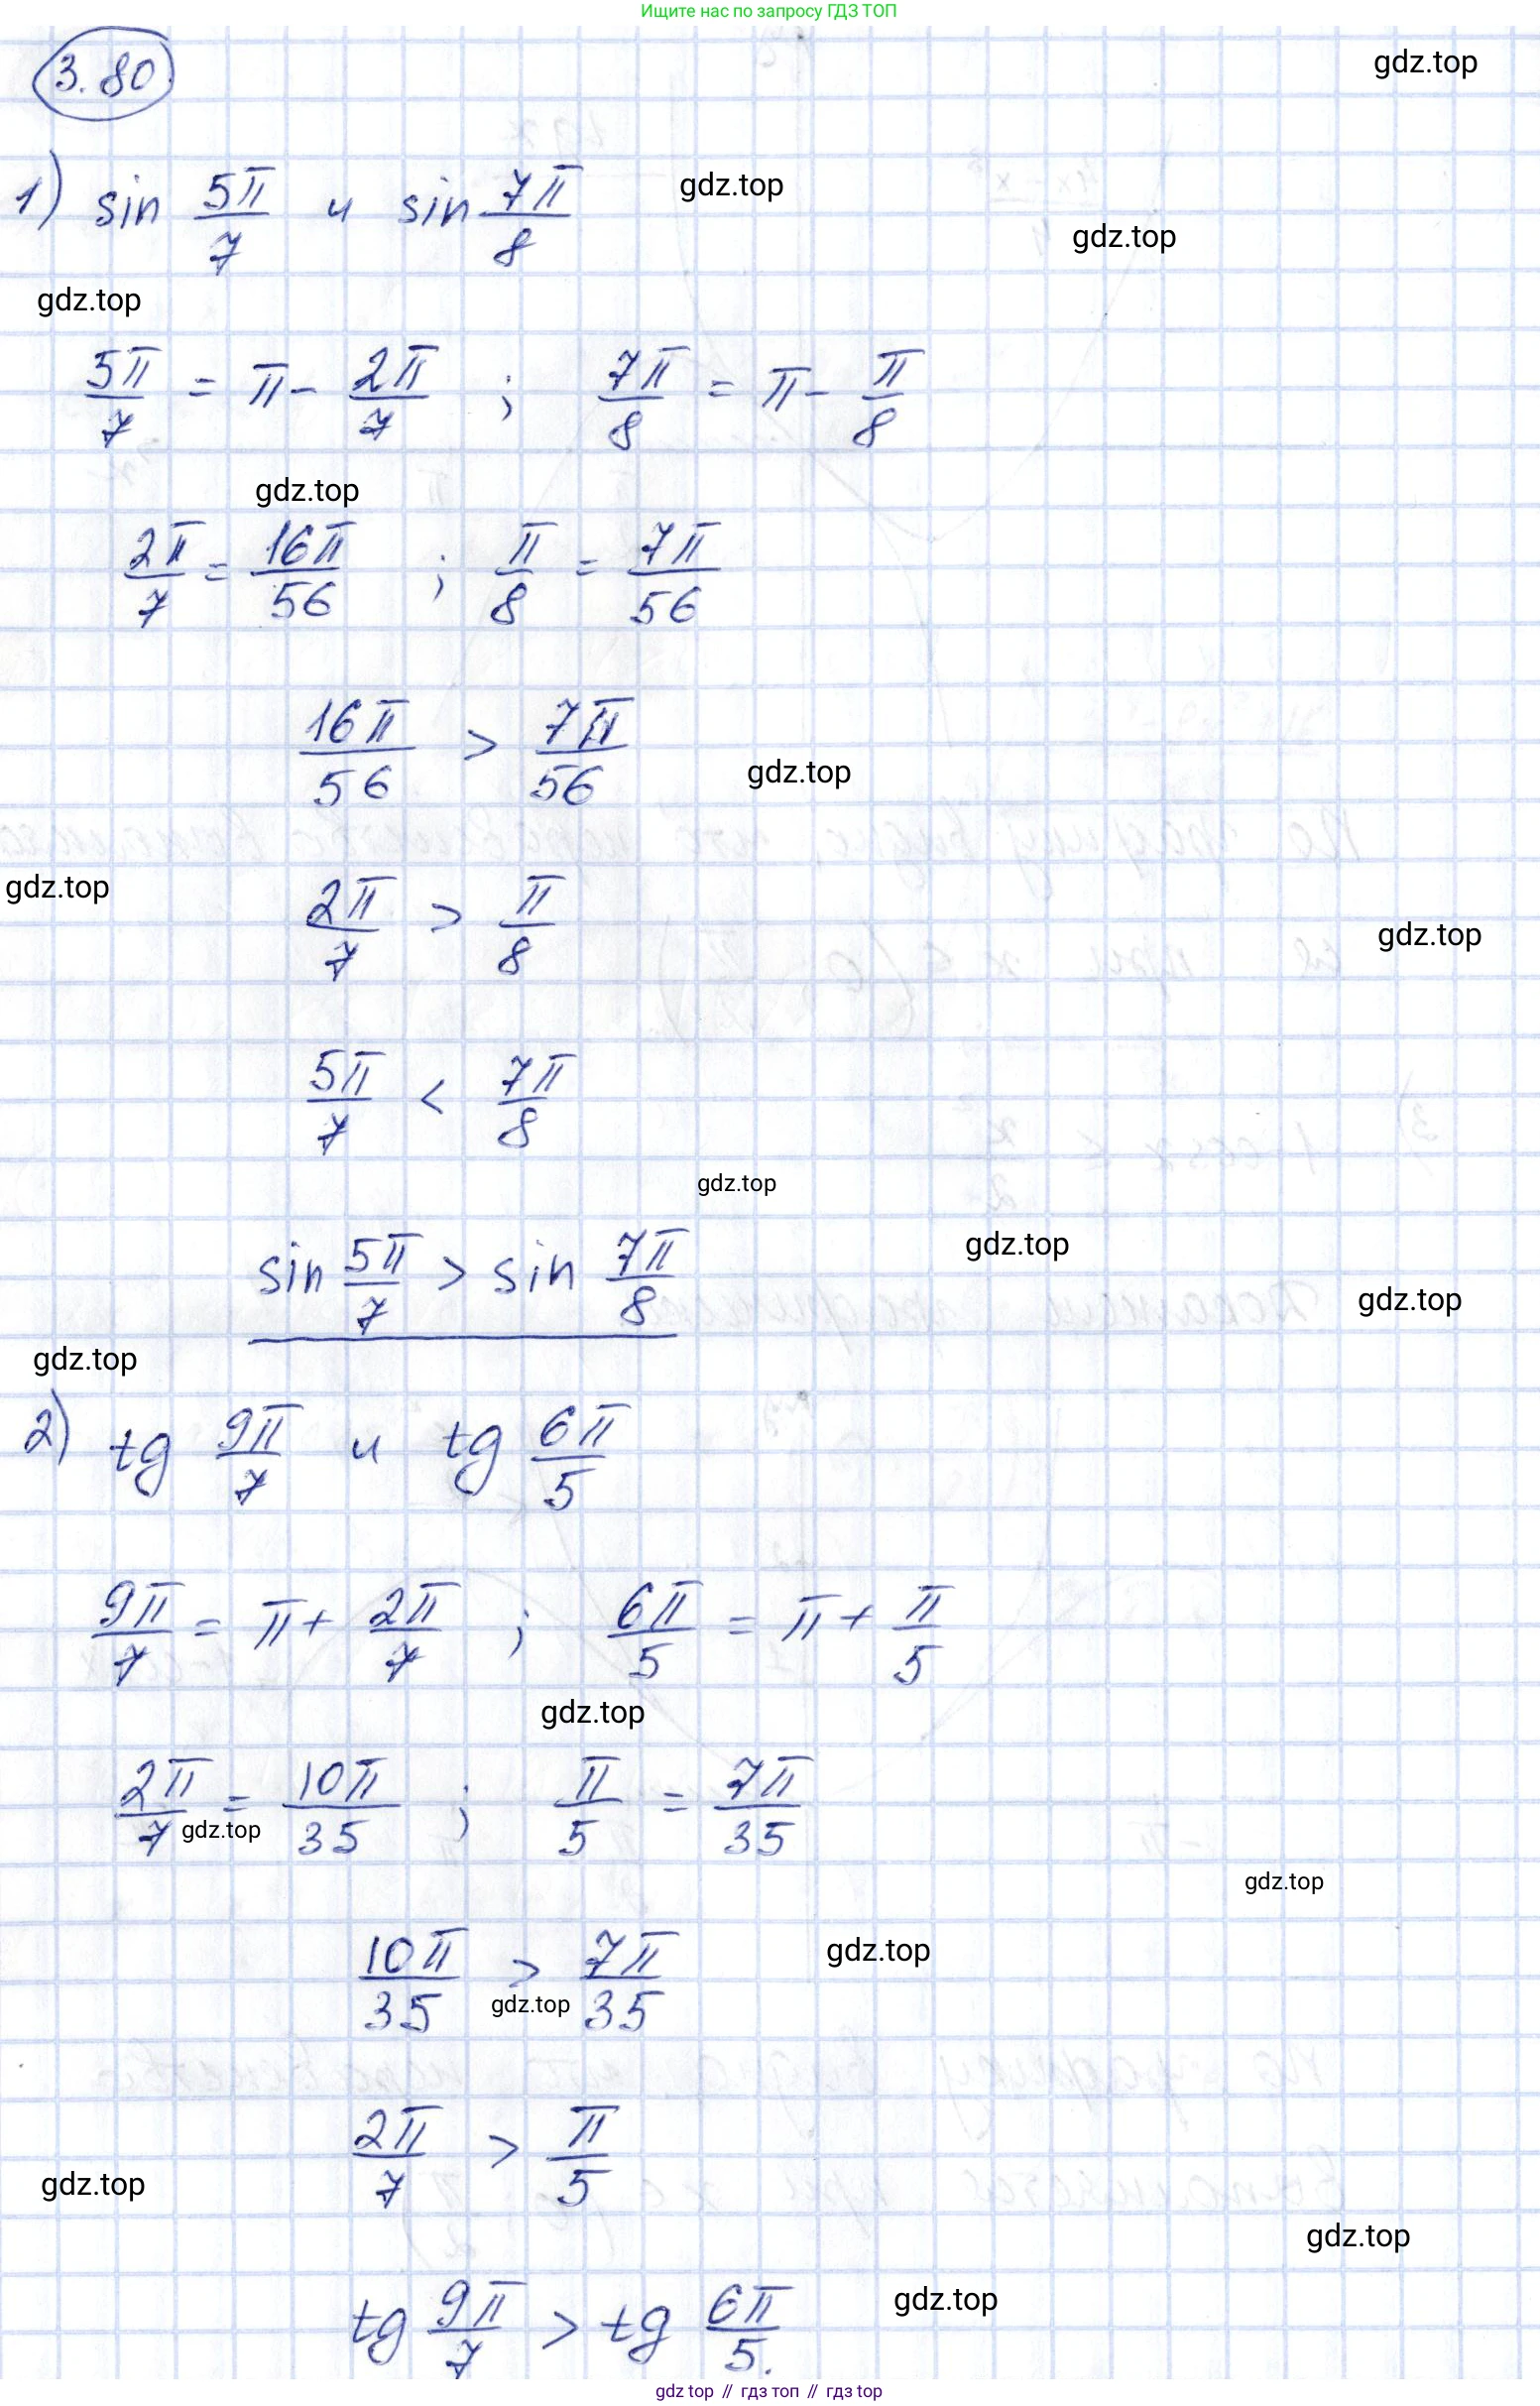 Ищите нас по запросу ГДЗ ТОП
3.80
gdz.top
1) sin 5π/7 и sin 7π/8
gdz.top
gdz.top
gdz.top
5π/7 = π - 2π/7 ; 7π/8 = π - π/8
gdz.top
2π/7 = 16π/56 ; π/8 = 7π/56
16π/56 > 7π/56
gdz.top
gdz.top
2π/7 > π/8
gdz.top
5π/7 < 7π/8
gdz.top
gdz.top
sin 5π/7 > sin 7π/8
gdz.top
gdz.top
2) tg 9π/7 и tg 6π/5
9π/7 = π + 2π/7 ; 6π/5 = π + π/5
gdz.top
2π/7 = 10π/35 ; π/5 = 7π/35
gdz.top
gdz.top
gdz.top
10π/35 > 7π/35
gdz.top
2π/7 > π/5
gdz.top
gdz.top
gdz.top
tg 9π/7 > tg 6π/5.
gdz top // гдз топ // гдз top